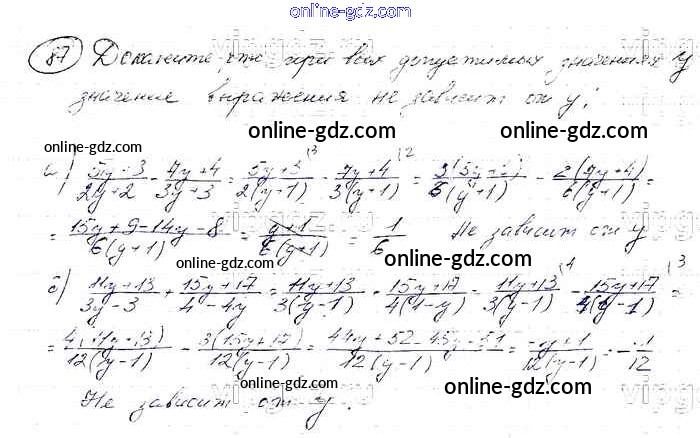 online-gdz.com
87 Докажите, что при всех допустимых значениях y
значение выражения не зависит от y:
online-gdz.com online-gdz.com
online-gdz.com online-gdz.com
а) (5y+3)/(2y+2) - (7y+4)/(3y+3) = (5y+3)/(2(y+1)) |3 - (7y+4)/(3(y+1)) |2 = 3(5y+3)/(6(y+1)) - 2(7y+4)/(6(y+1)) =
= (15y+9-14y-8)/(6(y+1)) = (y+1)/(6(y+1)) = 1/6 Не зависит от y
online-gdz.com online-gdz.com
б) (11y+13)/(3y-3) + (15y+17)/(4-4y) = (11y+13)/(3(y-1)) + (15y+17)/(4(1-y)) = (11y+13)/(3(y-1)) |4 - (15y+17)/(4(y-1)) |3 =
online-gdz.com
= 4(11y+13)/(12(y-1)) - 3(15y+17)/(12(y-1)) = (44y+52-45y-51)/(12(y-1)) = (-y+1)/(12(y-1)) = -1/12
online-gdz.com online-gdz.com
Не зависит от y.
online-gdz.com